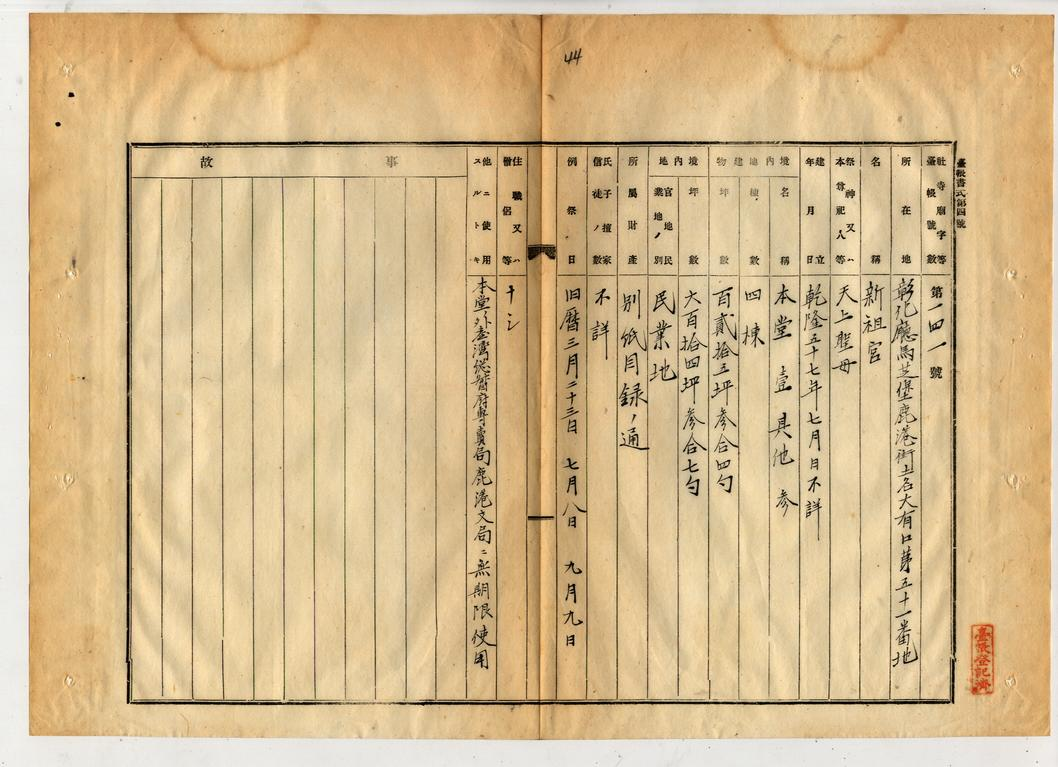 44
臺帳書式第四號
社寺廟宇等臺帳號數 第一四一號
所在地 彰化廳馬芝堡鹿港街土名大有口第五十一番地
名稱 新祖宮
祭神又ハ本尊祀人等 天上聖母
建立年月日 乾隆五十七年七月日不詳
境內建物 名稱 本堂 壹 其他 参
地棟數 四棟
坪數 百貳拾五坪参合四勺
境內地 坪數 六百拾四坪参合七勺
官地民業地ノ別 民業地
所屬財產 別紙目録ノ通
氏子檀家信徒ノ數 不詳
例祭日 旧暦三月二十三日 七月八日 九月九日
住職又ハ僧侶等 ナシ
他ニ使用スルトキ 本堂外臺灣總督府專賣局鹿港支局ニ無期限使用
事故
臺帳登記濟